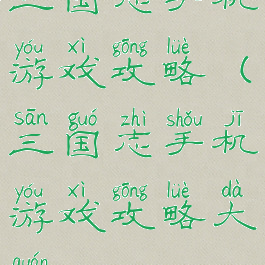 三国志手机
yóu xì gōng lüè
游戏攻略（
sān guó zhì shǒu jī
三国志手机
yóu xì gōng lüè dà
游戏攻略大
quán